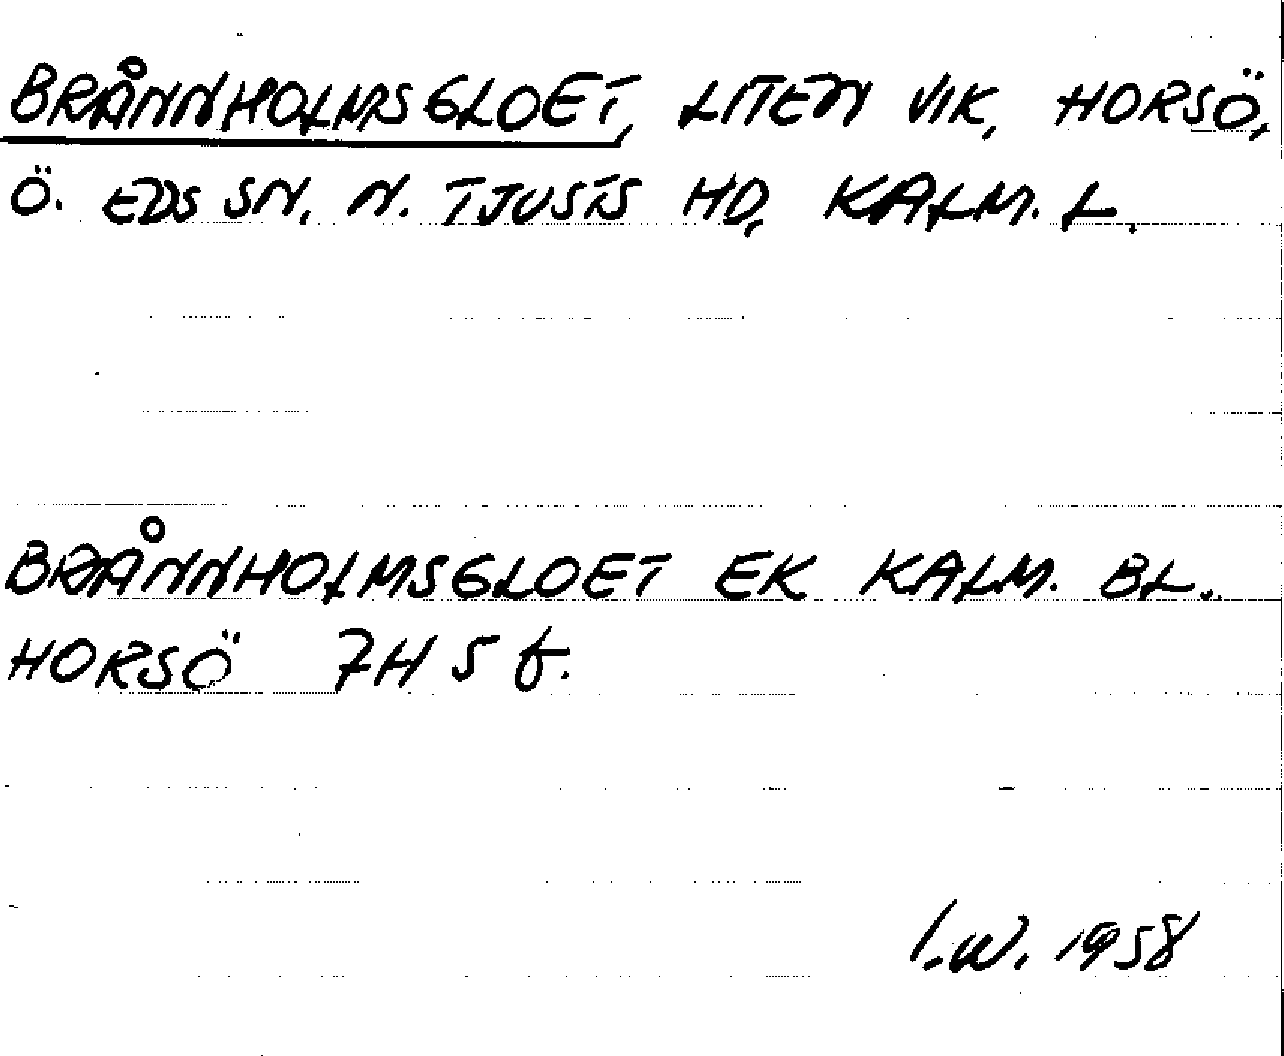 BRÅNNHOLMSGLOET, LITEN VIK, HORSÖ,
Ö. EDS SN, N. TJUSTS HD, KALM. L.
BRÅNNHOLMSGLOET EK KALM. BL.
HORSÖ 7H 5 f.
I.W. 1958